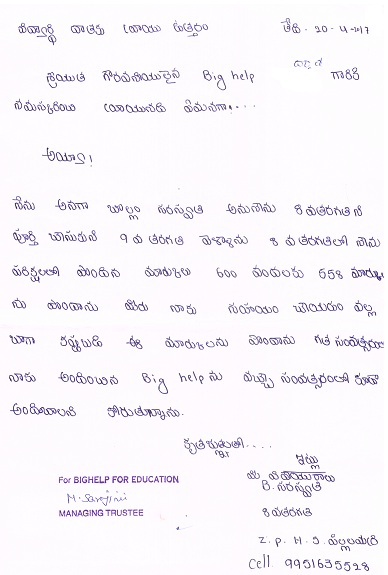 విద్యార్థి వ్రాతకు యొక్క ఉత్తరం తేది. 20-4-2017
శ్రీయుత గౌరవనీయులైన Big help గారికి
నమస్కరించి వ్రాయునది ఏమనగా!...
అయ్యా!
నేను అనగా సరస్వతి అనునేను 8 వ తరగతి ని
పూర్తి చేసుకుని 9 వ తరగతి వెళ్ళాను 8 వ తరగతిలో నేను
పరీక్షలలో పొందిన మార్కులు 600 వందలకు 558 మార్కుల
ను పొందాను మీరు నాకు సహాయం చేయడం వల్ల
బాగా కష్టపడి ఈ మార్కులను పొందాను గత సంవత్సరం
నాకు అందించిన Big help ను వచ్చే సంవత్సరంలో కూడా
అందించాలని కోరుతున్నాను.
కృతజ్ఞతలతో....
ఇట్లు
మీ విధేయురాలు
B. సరస్వతి
For BIGHELP FOR EDUCATION
M. Sarojini
MANAGING TRUSTEE
8 వ తరగతి
Z. P. H. S.
Cell 9951635528